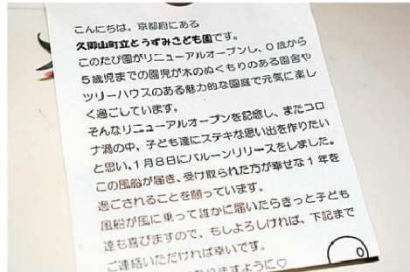 こんにちは。京都府にある
久御山町立とうずみこども園です。
このたび園がリニューアルオープンし、0歳から
5歳児までの園児が木のぬくもりのある園舎や
ツリーハウスのある魅力的な園庭で元気に楽し
く過ごしています。
そんなリニューアルオープンを記念し、またコロ
ナ渦の中、子ども達にステキな思い出を作りたい
と思い、1月8日にバルーンリリースをしました。
この風船が届き、受け取られた方が幸せな1年を
過ごされることを願っています。
風船が風に乗って誰かに届いたらきっと子ども
達も喜びますので、もしよろしければ、下記まで
ご連絡いただければ幸いです。
ありますように♡